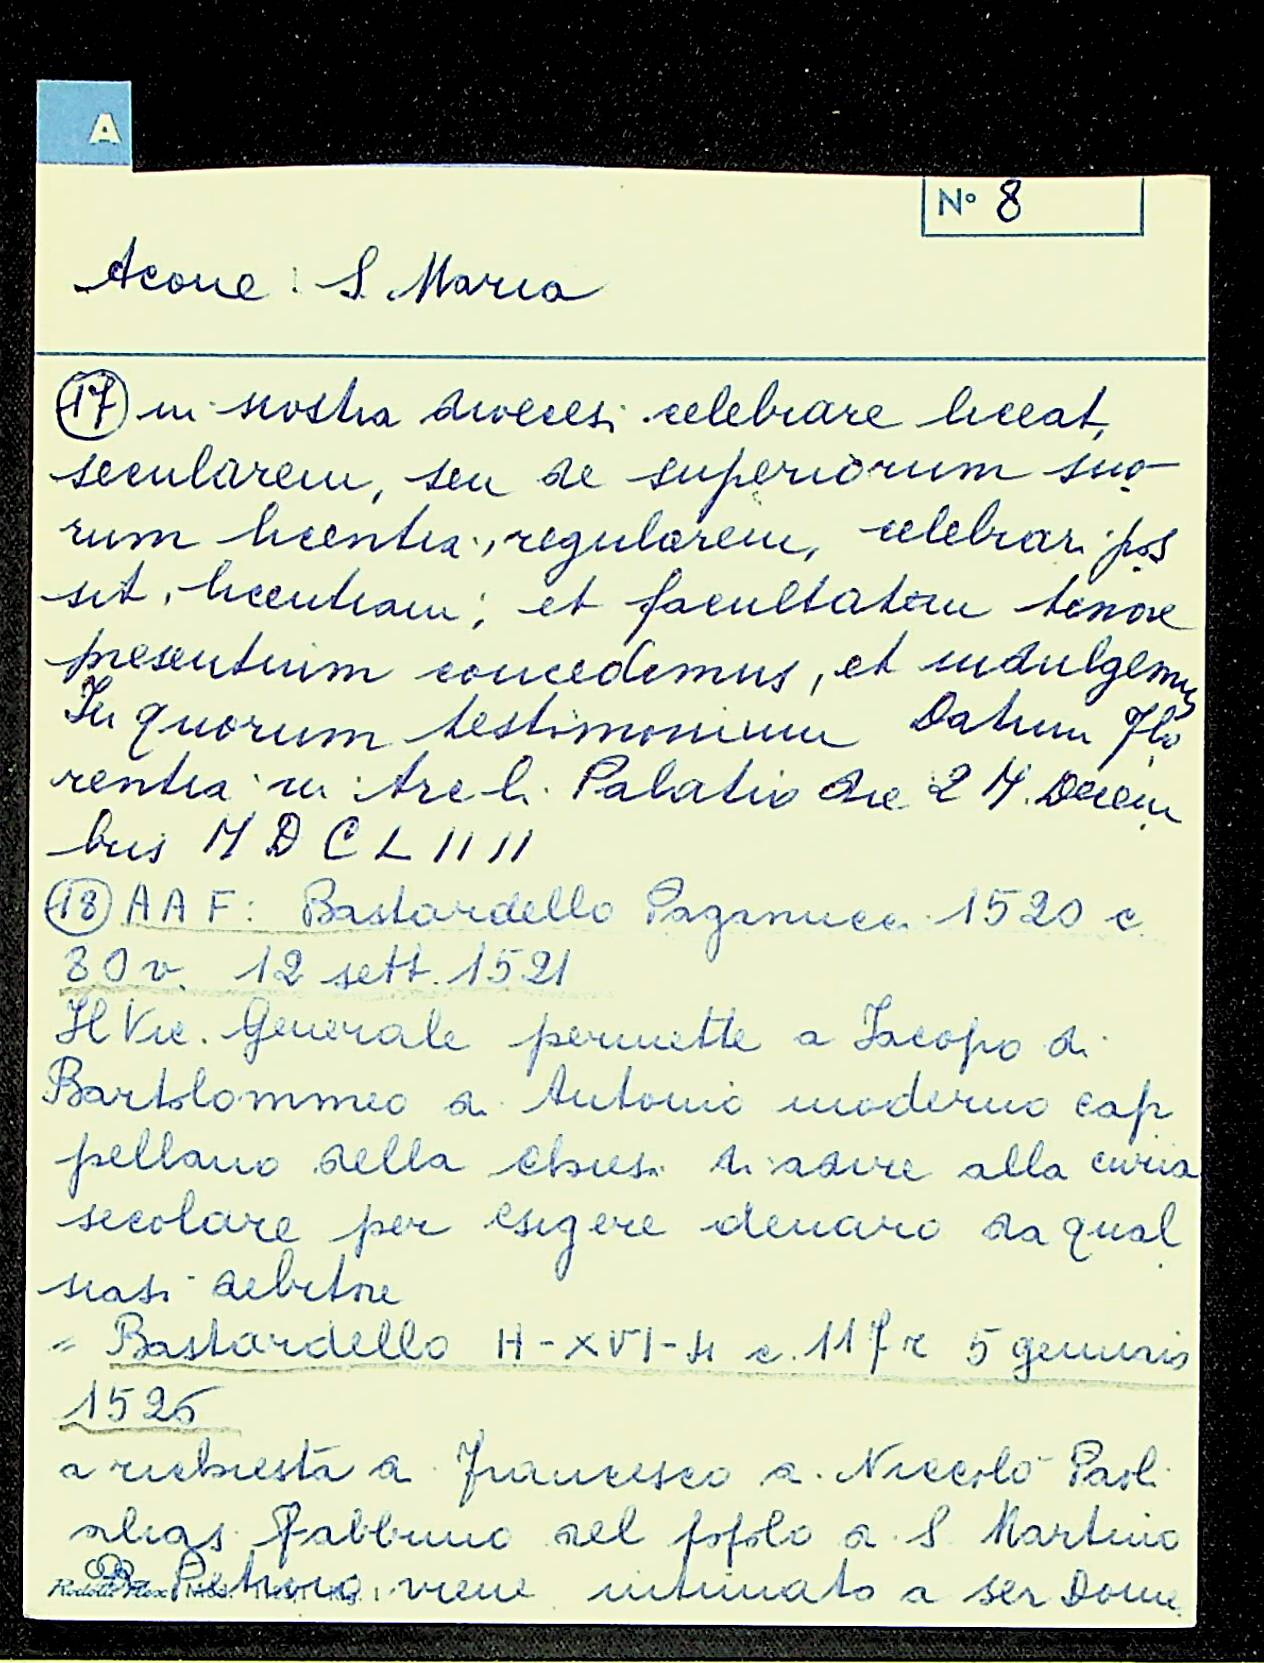 A
N° 8
Acone: S. Maria
(17) in nostra diocesi celebrare liceat,
secularem, seu de superiorum suo-
rum licentia, regularem, celebrari pos
sit, licentiam; et facultatem tenore
presentium concedimus, et indulgemus
In quorum testimonium Datum Flo
rentia in Arch. Palatio die 24. Decem
bris MDCLIIII
(18) AAF: Bastardello Paganucci 1520 c.
80v. 12 sett. 1521
Il Vic. Generale permette a Jacopo di
Bartolommeo di Antonio moderno cap
pellano della chiesa di adire alla curia
secolare per esigere denaro da qual
siasi debitore
= Bastardello H-XVI-4 c. 117r 5 gennaio
1526
a richiesta di Francesco di Niccolò Paoli
alias Fabbrino del popolo di S. Martino
viene intimato a ser Dome